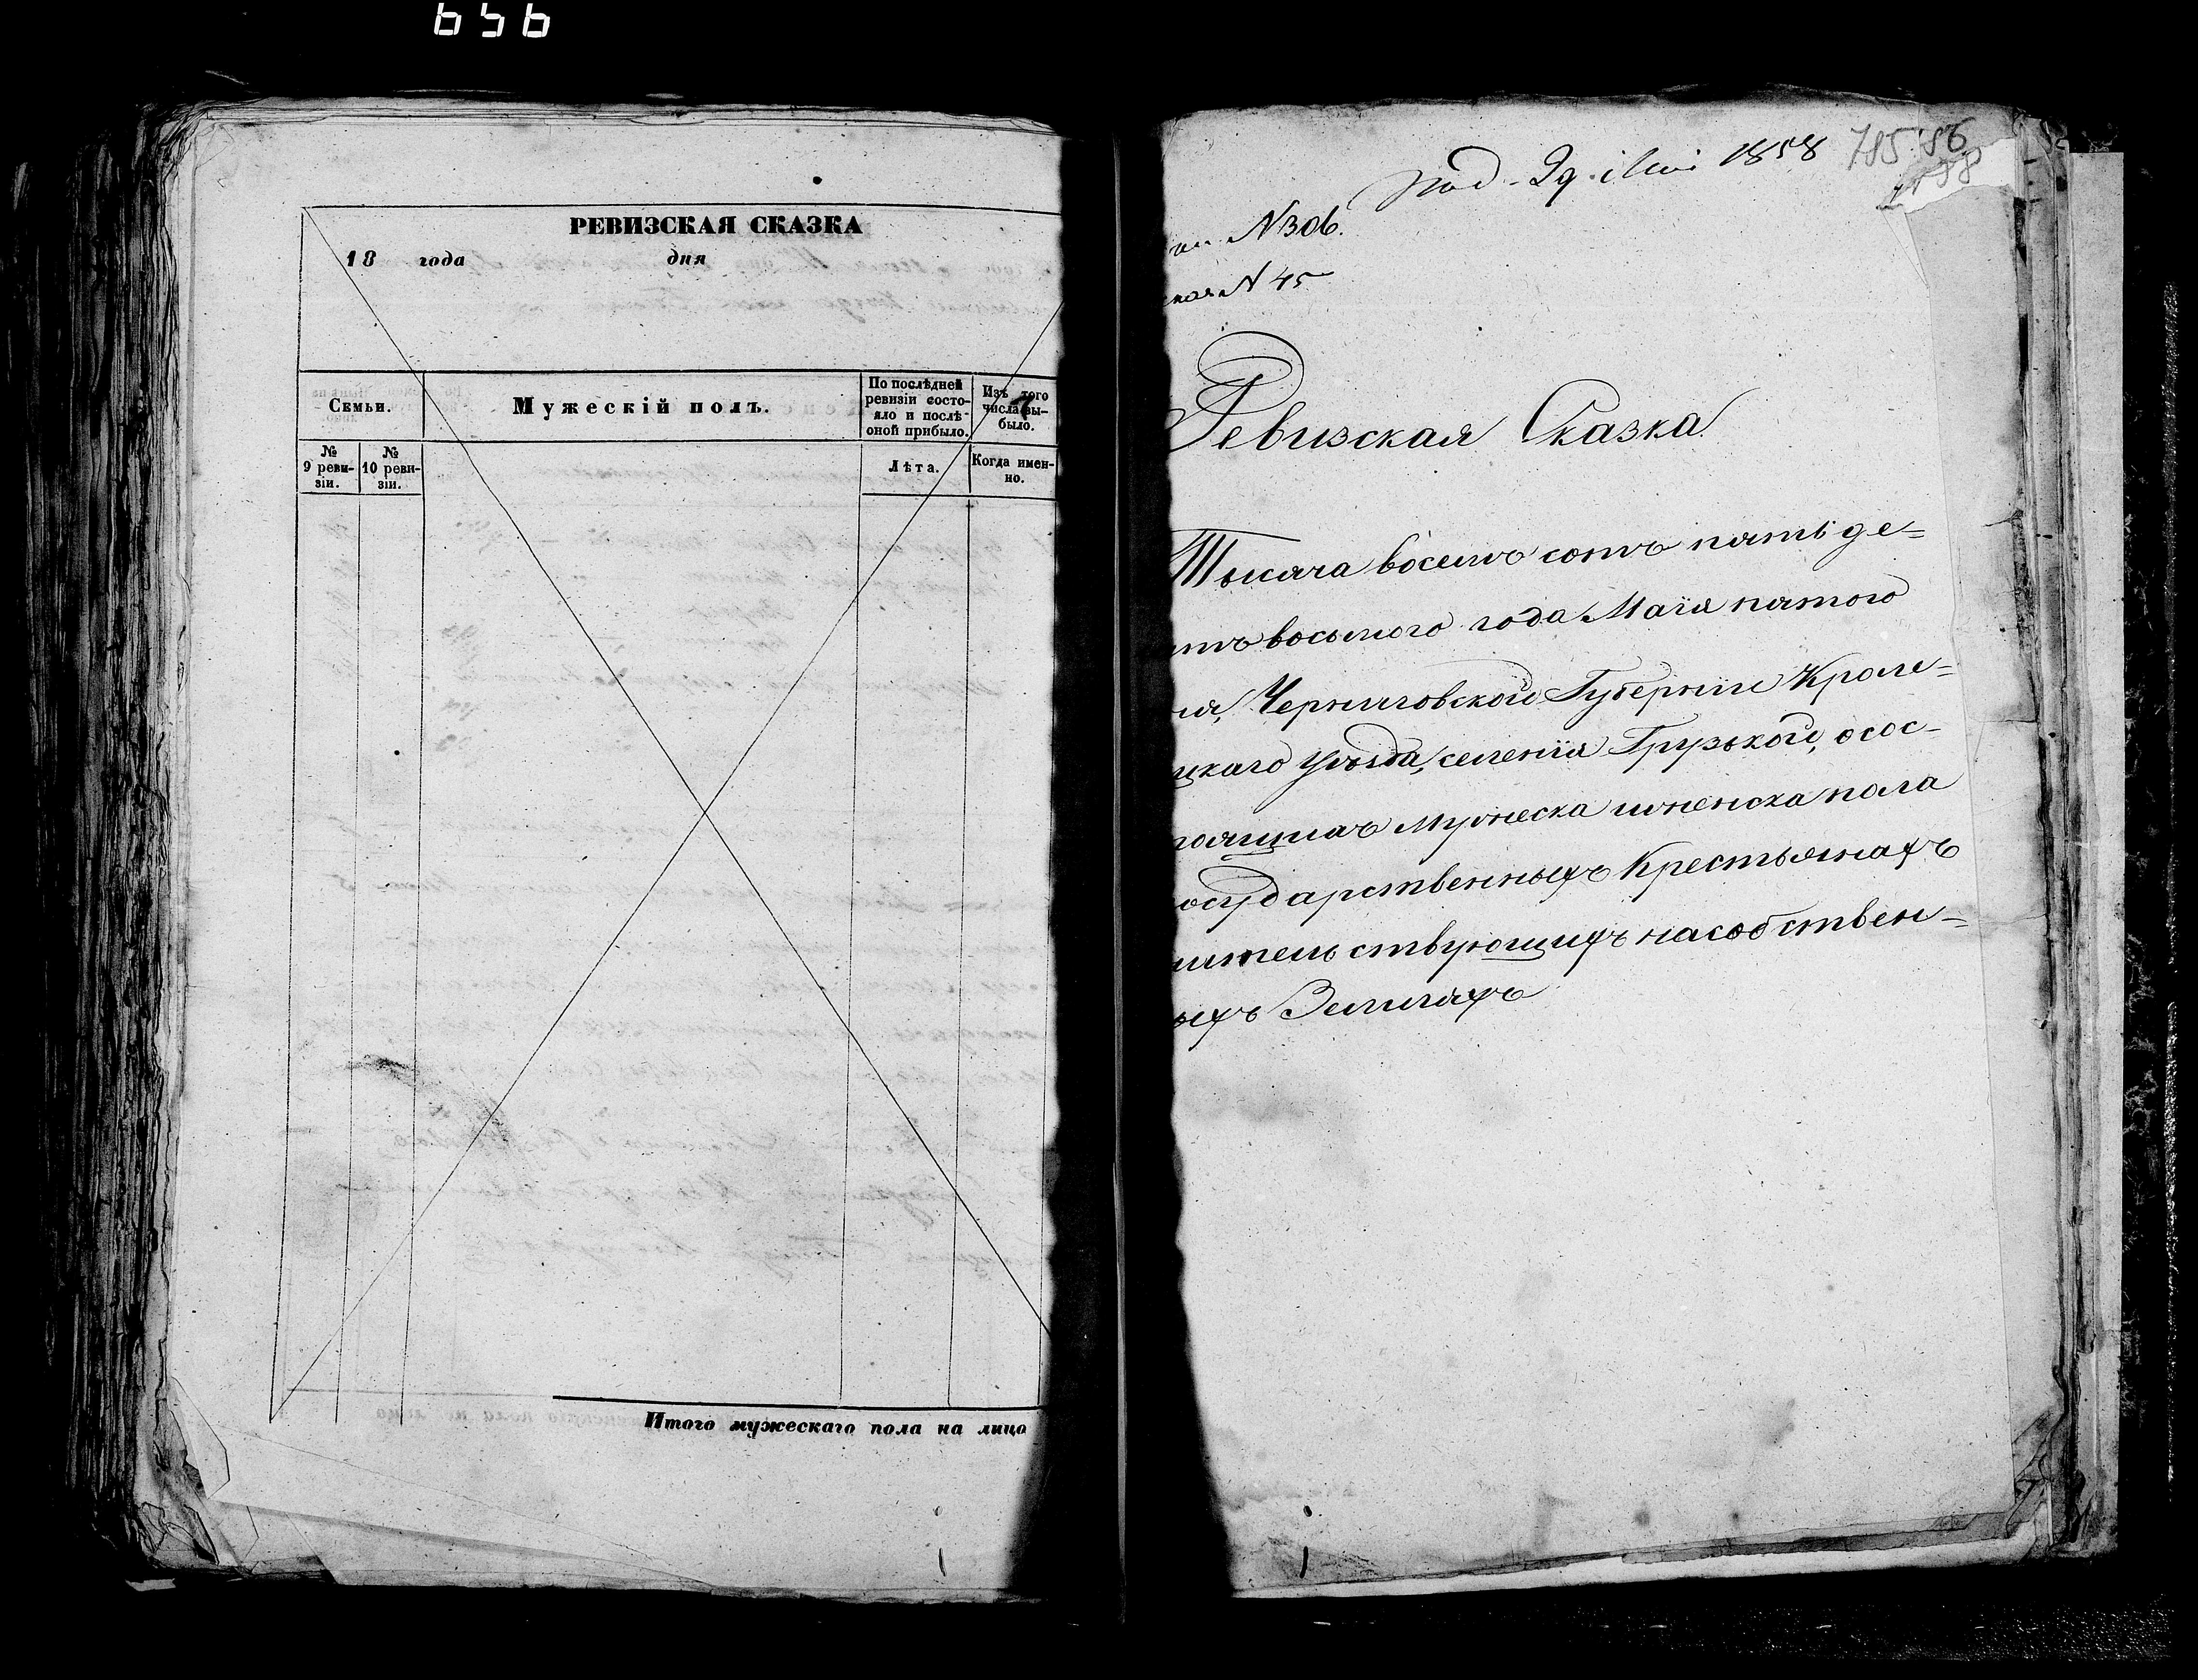 656
РЕВИЗСКАЯ СКАЗКА
18 года дня
Семьи.
Мужескій полъ.
По послѣдней ревизіи состо-
яло и послѣ
оной прибыло.
Изъ того
числа вы-
было.
№
9 реви-
зіи.
№
10 реви-
зіи.
Лѣта.
Когда имен-
но.
Итого мужескаго пола на лицо
1858 785 86
N 306.
N 45
Ревизская Сказка.
Тысяча восемъ сотъ пятьде=
тъ восьмого года Маія пятого
ия, Черниговской Губерніи Кроле=
цкаго уѣзда, селенія Грузькой, осос-
тоящихъ мужеска иженска пола
осударственныхъ Крестьянахъ
ительствующихъ насобствен=
ыхъ Земляхъ